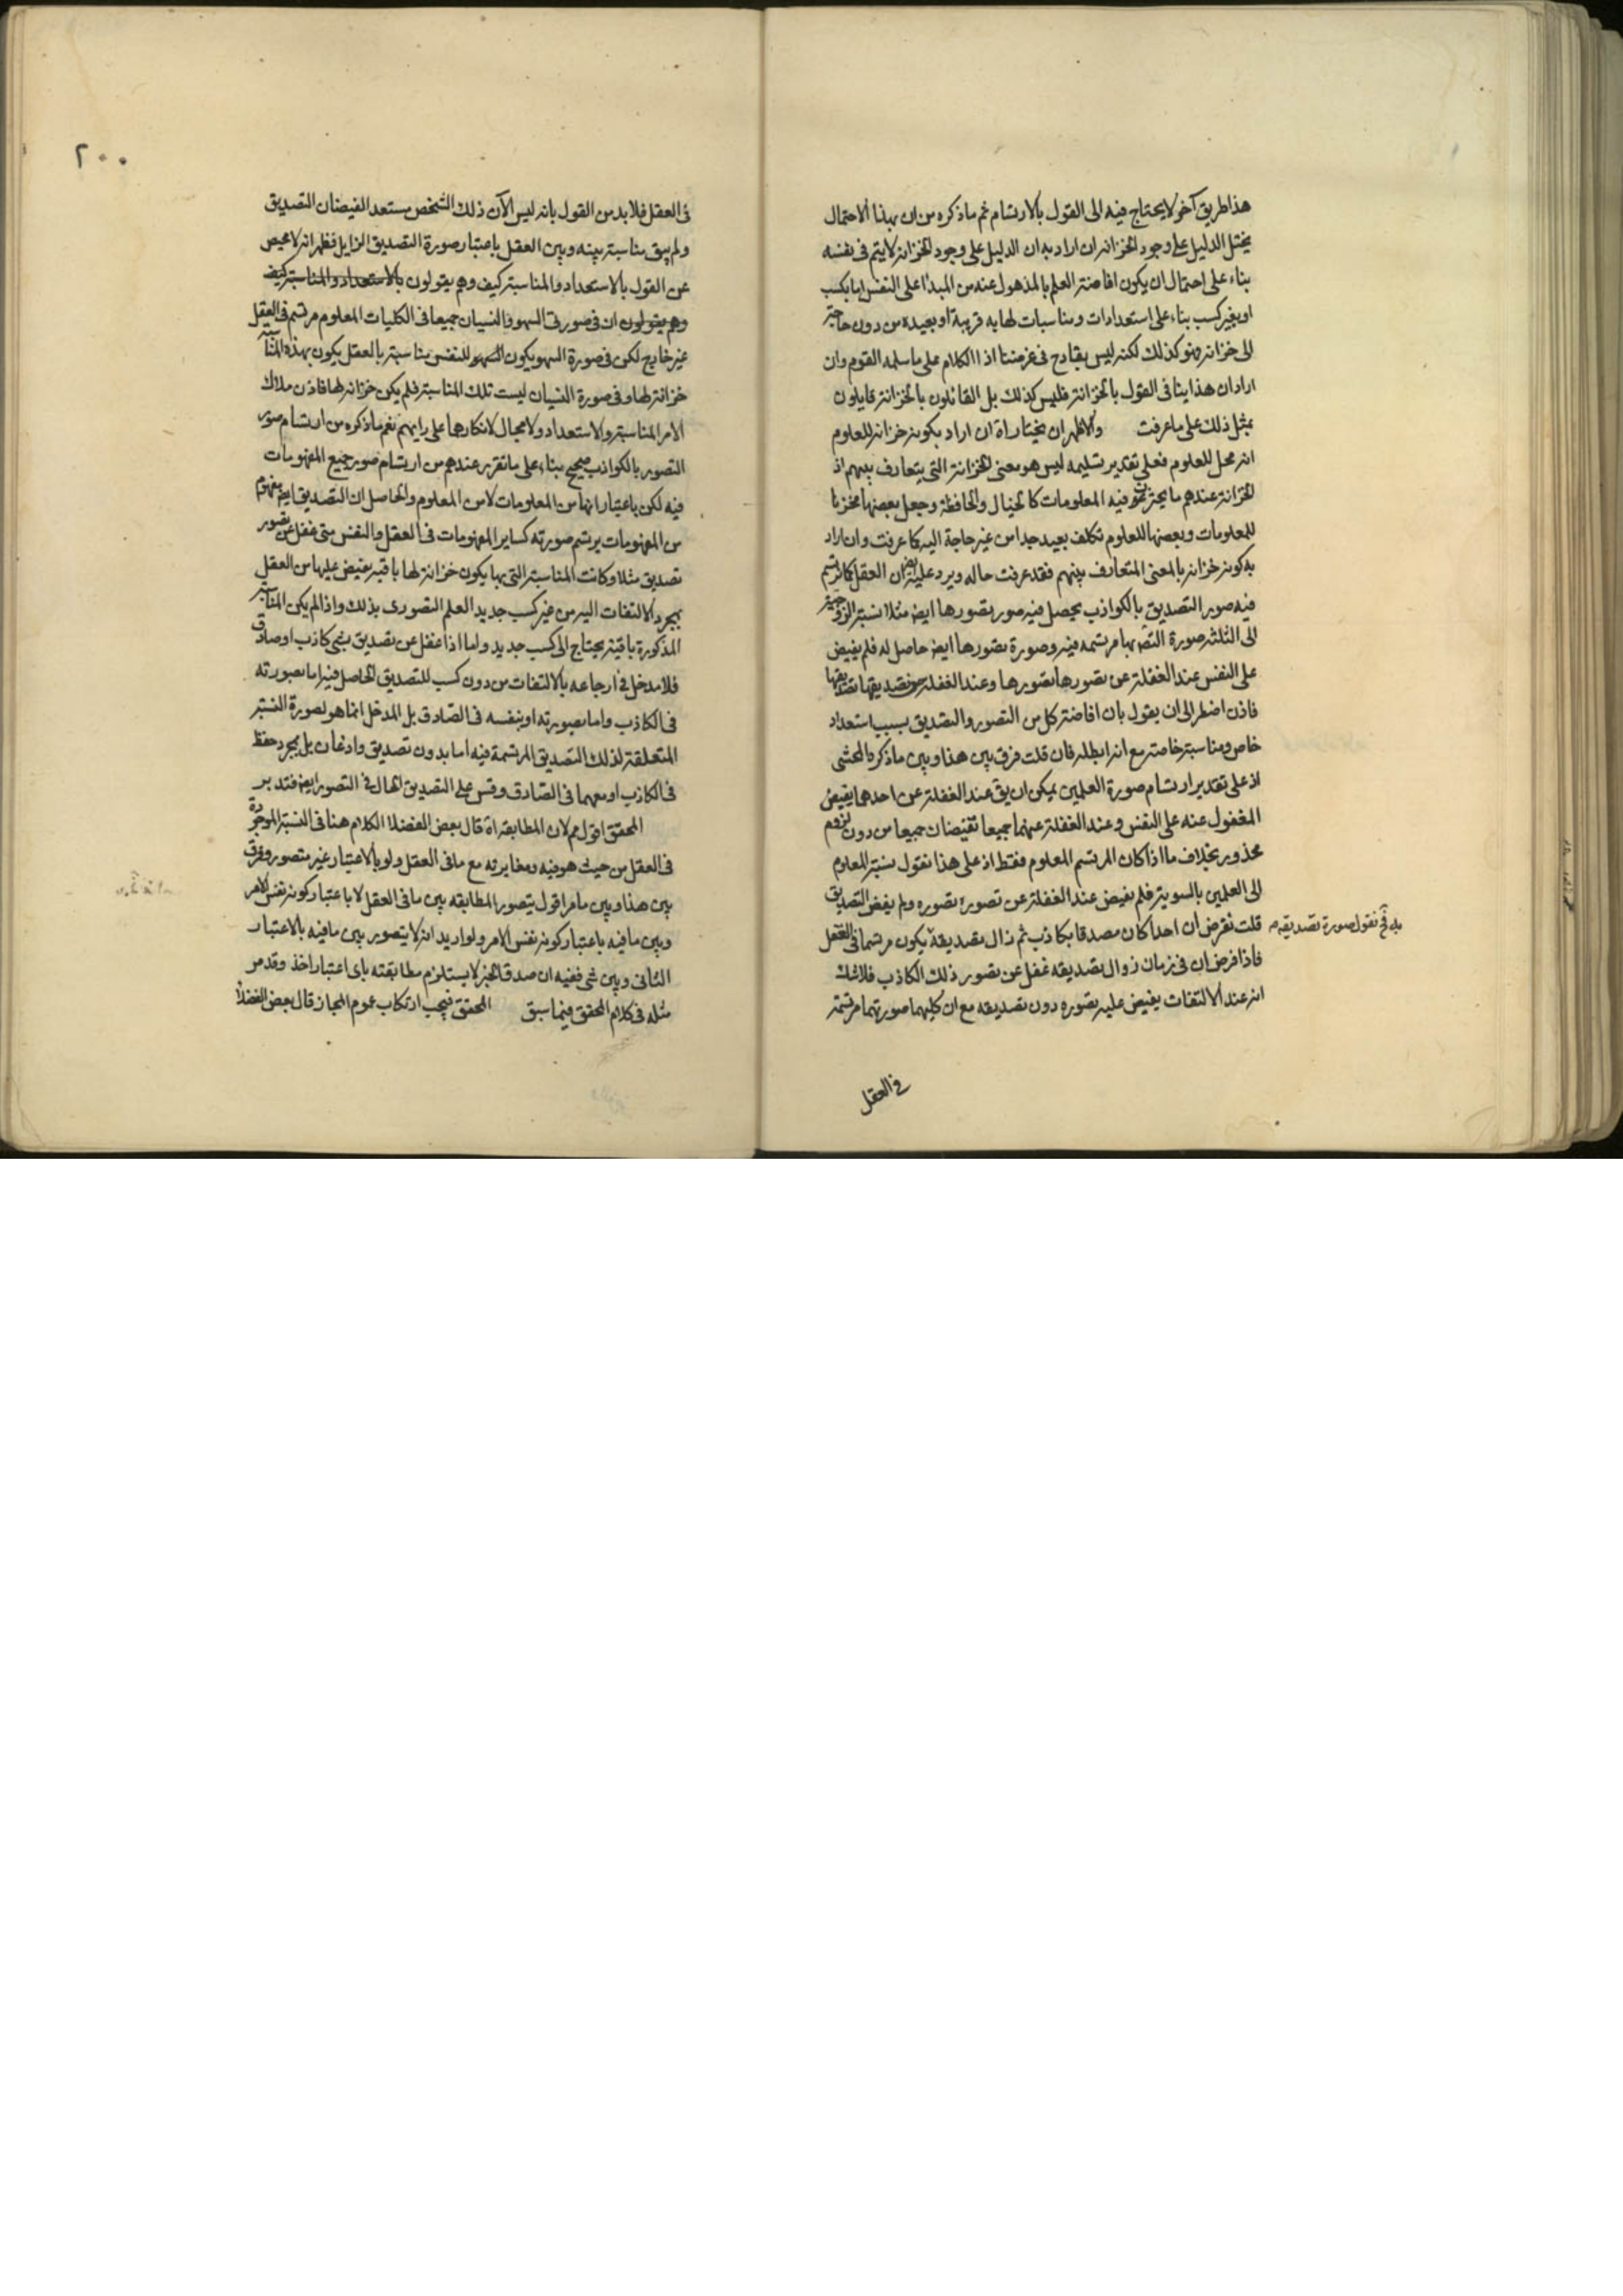 هذا طريق آخر لا يحتاج فيه الى القول بالارتسام ثم ما ذكره من ان بهذا الاحتمال
يختل الدليل على وجود الخزانه ان اراد به ان الدليل على وجود الخزانه لا يتم فى نفسه
بناء على احتمال ان يكون افاضته العلم بالمذهول عنه من المبدأ على النفس اما بكسب
او بغير كسب بناء على استعدادات ومناسبات لها به قريبة او بعيده من دون حاجة
الى خزانه فهو كذلك لكنه ليس بقادح فى غرضنا اذ الكلام على ما سلمه القوم وان
اراد ان هذا ينافى القول بالخزانة فليس كذلك بل القائلون بالخزانة قايلون
بمثل ذلك على ما عرفت والاظهر ان يختار اه ان اراد بكونه خزانه للعلوم
انه محل للعلوم فعلى تقدير تسليمه ليس هو معنى الخزانة التى يتعارف بينهم اذ
الخزانة عندهم ما يخزن فيه المعلومات كالخيال والحافظة وجعل بعضها مخزنا
للمعلومات وبعضها للعلوم تكلف بعيد جدا من غير حاجة اليه كما عرفت وان اراد
بكونه خزانه بالمعنى المتعارف بينهم فقد عرفت حاله ويرد عليه ايض ان العقل كما يرتسم
فيه صور التصديق بالكواذب يحصل فيه صور تصورها ايض مثلا نسبة الزوجية
الى الثلثه صورة التصديق بها مرتسمه فيه وصورة تصورها ايض حاصل له فلم يفيض
على النفس عند الغفلة عن تصورها تصورها وعند الغفلة عن تصديقها تصديقها
فاذن اضطر الى ان يقول بان افاضة كل من التصور والتصديق بسبب استعداد
خاص ومناسبة خاصة مع انه ابطله فان قلت فرق بين هذا وبين ما ذكره المحشى
اذ على تقدير ارتسام صورة العلمين يمكن ان يق عند الغفلة عن احدهما يفيض
المغفول عنه على النفس وعند الغفلة عنهما جميعا تفيضان جميعا من دون لزوم
محذور بخلاف ما اذا كان المرتسم المعلوم فقط اذ على هذا نقول نسبة المعلوم
الى العلمين بالسوية فلم يفيض عند الغفلة عن تصوره تصوره ولم يفض التصديق
به قلت نفرض ان احدا كان مصدقا بكاذب ثم زال تصديقه يكون مرتسما فى العقل
فح نقول صورة تصديقه
فاذا فرض ان فى زمان زوال تصديقه غفل عن تصور ذلك الكاذب فلا شك
انه عند الالتفات يفيض عليه تصوره دون تصديقه مع ان كليهما صورتهما مرتسمة
فى العقل
٢٠٠
فى العقل فلا بد من القول بانه ليس الآن ذلك الشخص مستعد الفيضان التصديق
ولم يبق مناسبة بينه وبين العقل باعتبار صورة التصديق الزايل فظهر انه لا محيص
عن القول بالاستعداد والمناسبة كيف وهم يقولون بالاستعداد والمناسبة كيف
وهم يقولون ان فى صورتى السهو والنسيان جميعا فى الكليات المعلوم مرتسم فى العقل
غير خارج لكن فى صورة السهو يكون للنفس مناسبة بالعقل يكون بهذه المناسبة
خزانة لها وفى صورة النسيان ليست تلك المناسبة فلم يكن خزانه لها فاذن ملاك
الامر المناسبة والاستعداد ولا مجال لانكارها على رايهم نعم ما ذكره من ارتسام صور
التصور بالكواذب صحيح بناء على ما تقرر عندهم من ارتسام صور جميع المفهومات
فيه لكن باعتبار انها من المعلومات لا من المعلوم والحاصل ان التصديق ايض مفهوم
من المفهومات يرتسم صورته كساير المفهومات فى العقل والنفس متى غفل عن تصور
تصديق مثلا وكانت المناسبة التى بها يكون خزانة لها باقيه يفيض عليها من العقل
بمجرد الالتفات اليه من غير كسب جديد العلم التصورى بذلك واذا لم يكن المناسبة
المذكورة باقية يحتاج الى كسب جديد واما اذا غفل عن تصديق بشى كاذب او صادق
فلا مدخل فى ارجاعه بالالتفات من دون كسب للتصديق الحاصل فيه اما بصورته
فى الكاذب واما بصورته او بنفسه فى الصادق بل المدخل انما هو لصورة النسبة
المتعلقة لذلك التصديق المرتسمة فيه اما بدون تصديق واذعان بل بمجرد حفظ
فى الكاذب او معهما فى الصادق وقس على التصديق الحال فى التصور ايض فتدبر
المحقق اقول مم لان المطابقه اه قال بعض الفضلا الكلام هنا فى النسبة الموجودة
فى العقل من حيث هو فيه ومغايرته مع ما فى العقل ولو بالاعتبار غير متصور وفرق
بين هذا وبين ما مر اقول يتصور المطابقه بين ما فى العقل لا باعتبار كونه نفس الامر
وبين ما فيه باعتبار كونه نفس الامر ولو اريد انه لا يتصور بين ما فيه بالاعتبار
الثانى وبين شى ففيه ان صدق الخبر لا يستلزم مطابقته باى اعتبار اخذ وقد مر
مثله فى كلام المحقق فيما سبق المحقق فيجب ارتكاب عموم المجاز قال بعض الفضلا